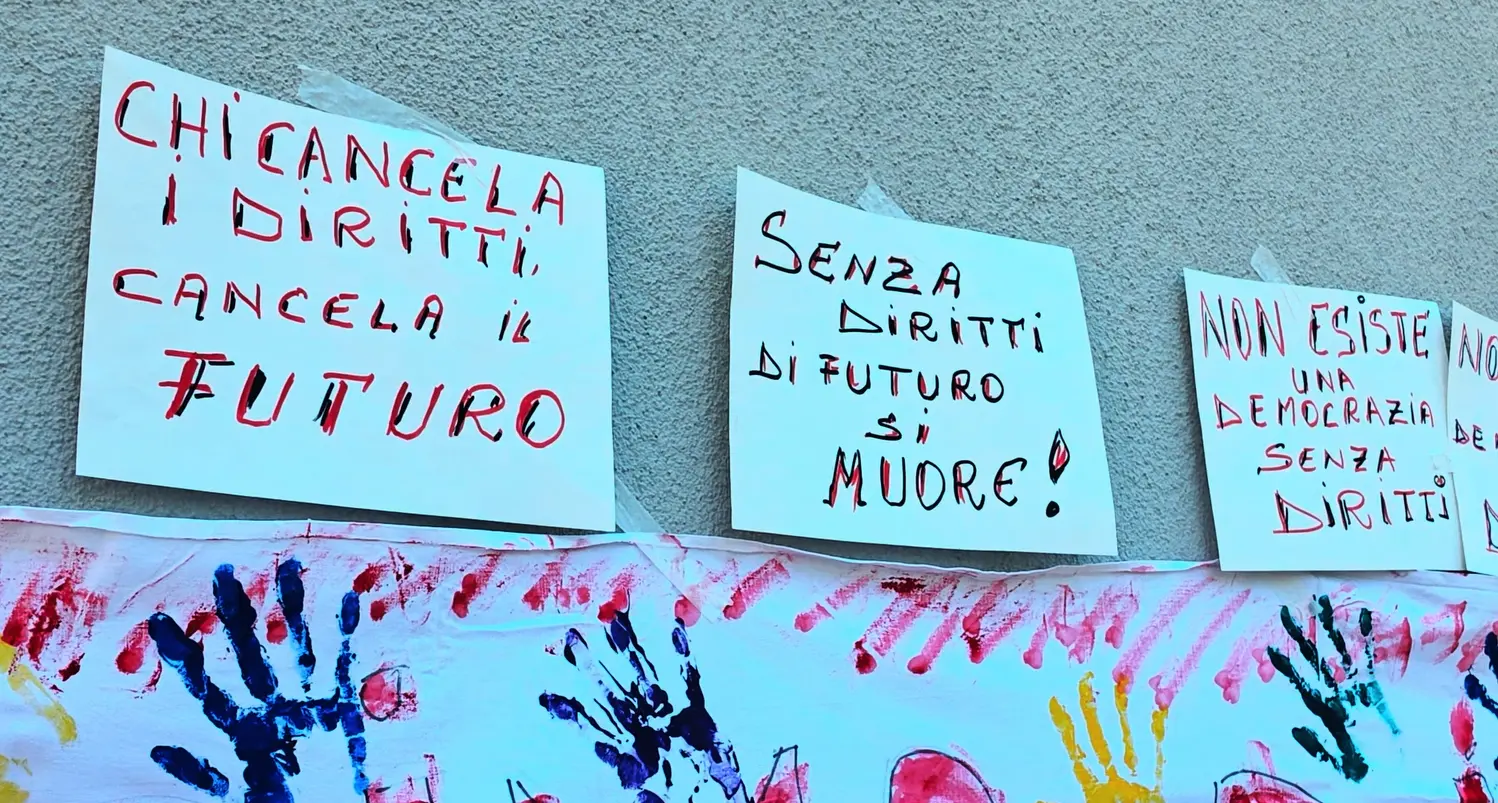 CHI CANCELA
I DIRITTI,
CANCELA IL
FUTURO
SENZA
DIRITTI
DI FUTURO
SI
MUORE!
NON ESISTE
UNA
DEMOCRAZIA
SENZA
DIRITTI